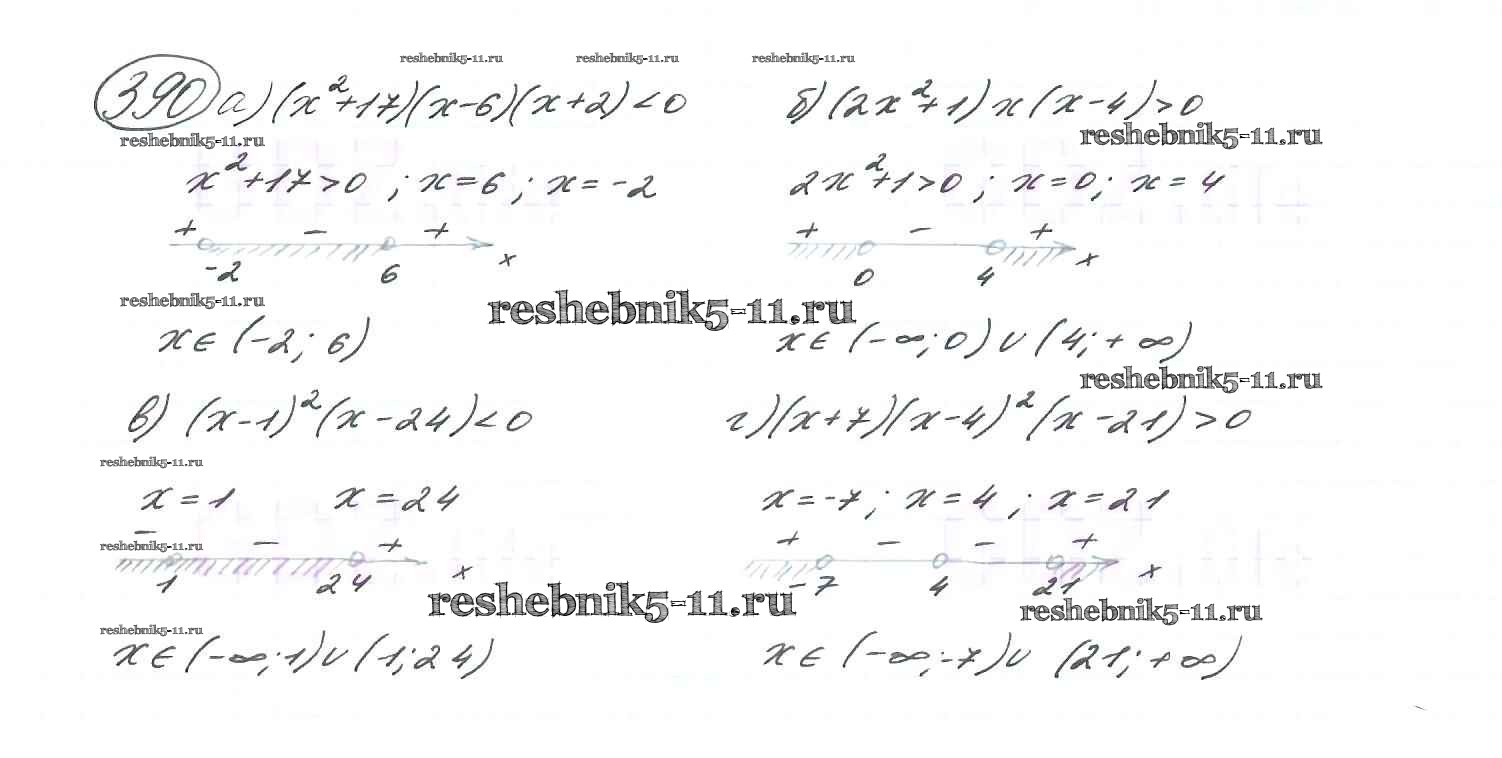 reshebnik5-11.ru reshebnik5-11.ru reshebnik5-11.ru
390 а) (x²+17)(x-6)(x+2)<0 б) (2x²+1)x(x-4)>0
reshebnik5-11.ru reshebnik5-11.ru
x²+17>0 ; x=6 ; x=-2 2x²+1>0 ; x=0; x=4
+ - + + - +
-2 6 x 0 4 x
reshebnik5-11.ru reshebnik5-11.ru
x∈(-2; 6) x∈(-∞;0)∪(4;+∞)
reshebnik5-11.ru
в) (x-1)²(x-24)<0 г) (x+7)(x-4)²(x-21)>0
reshebnik5-11.ru
x=1 x=24 x=-7; x=4 ; x=21
- - + + - - +
reshebnik5-11.ru
1 24 x -7 4 21 x
reshebnik5-11.ru reshebnik5-11.ru
reshebnik5-11.ru
x∈(-∞;1)∪(1;24) x∈(-∞;-7)∪(21;+∞)